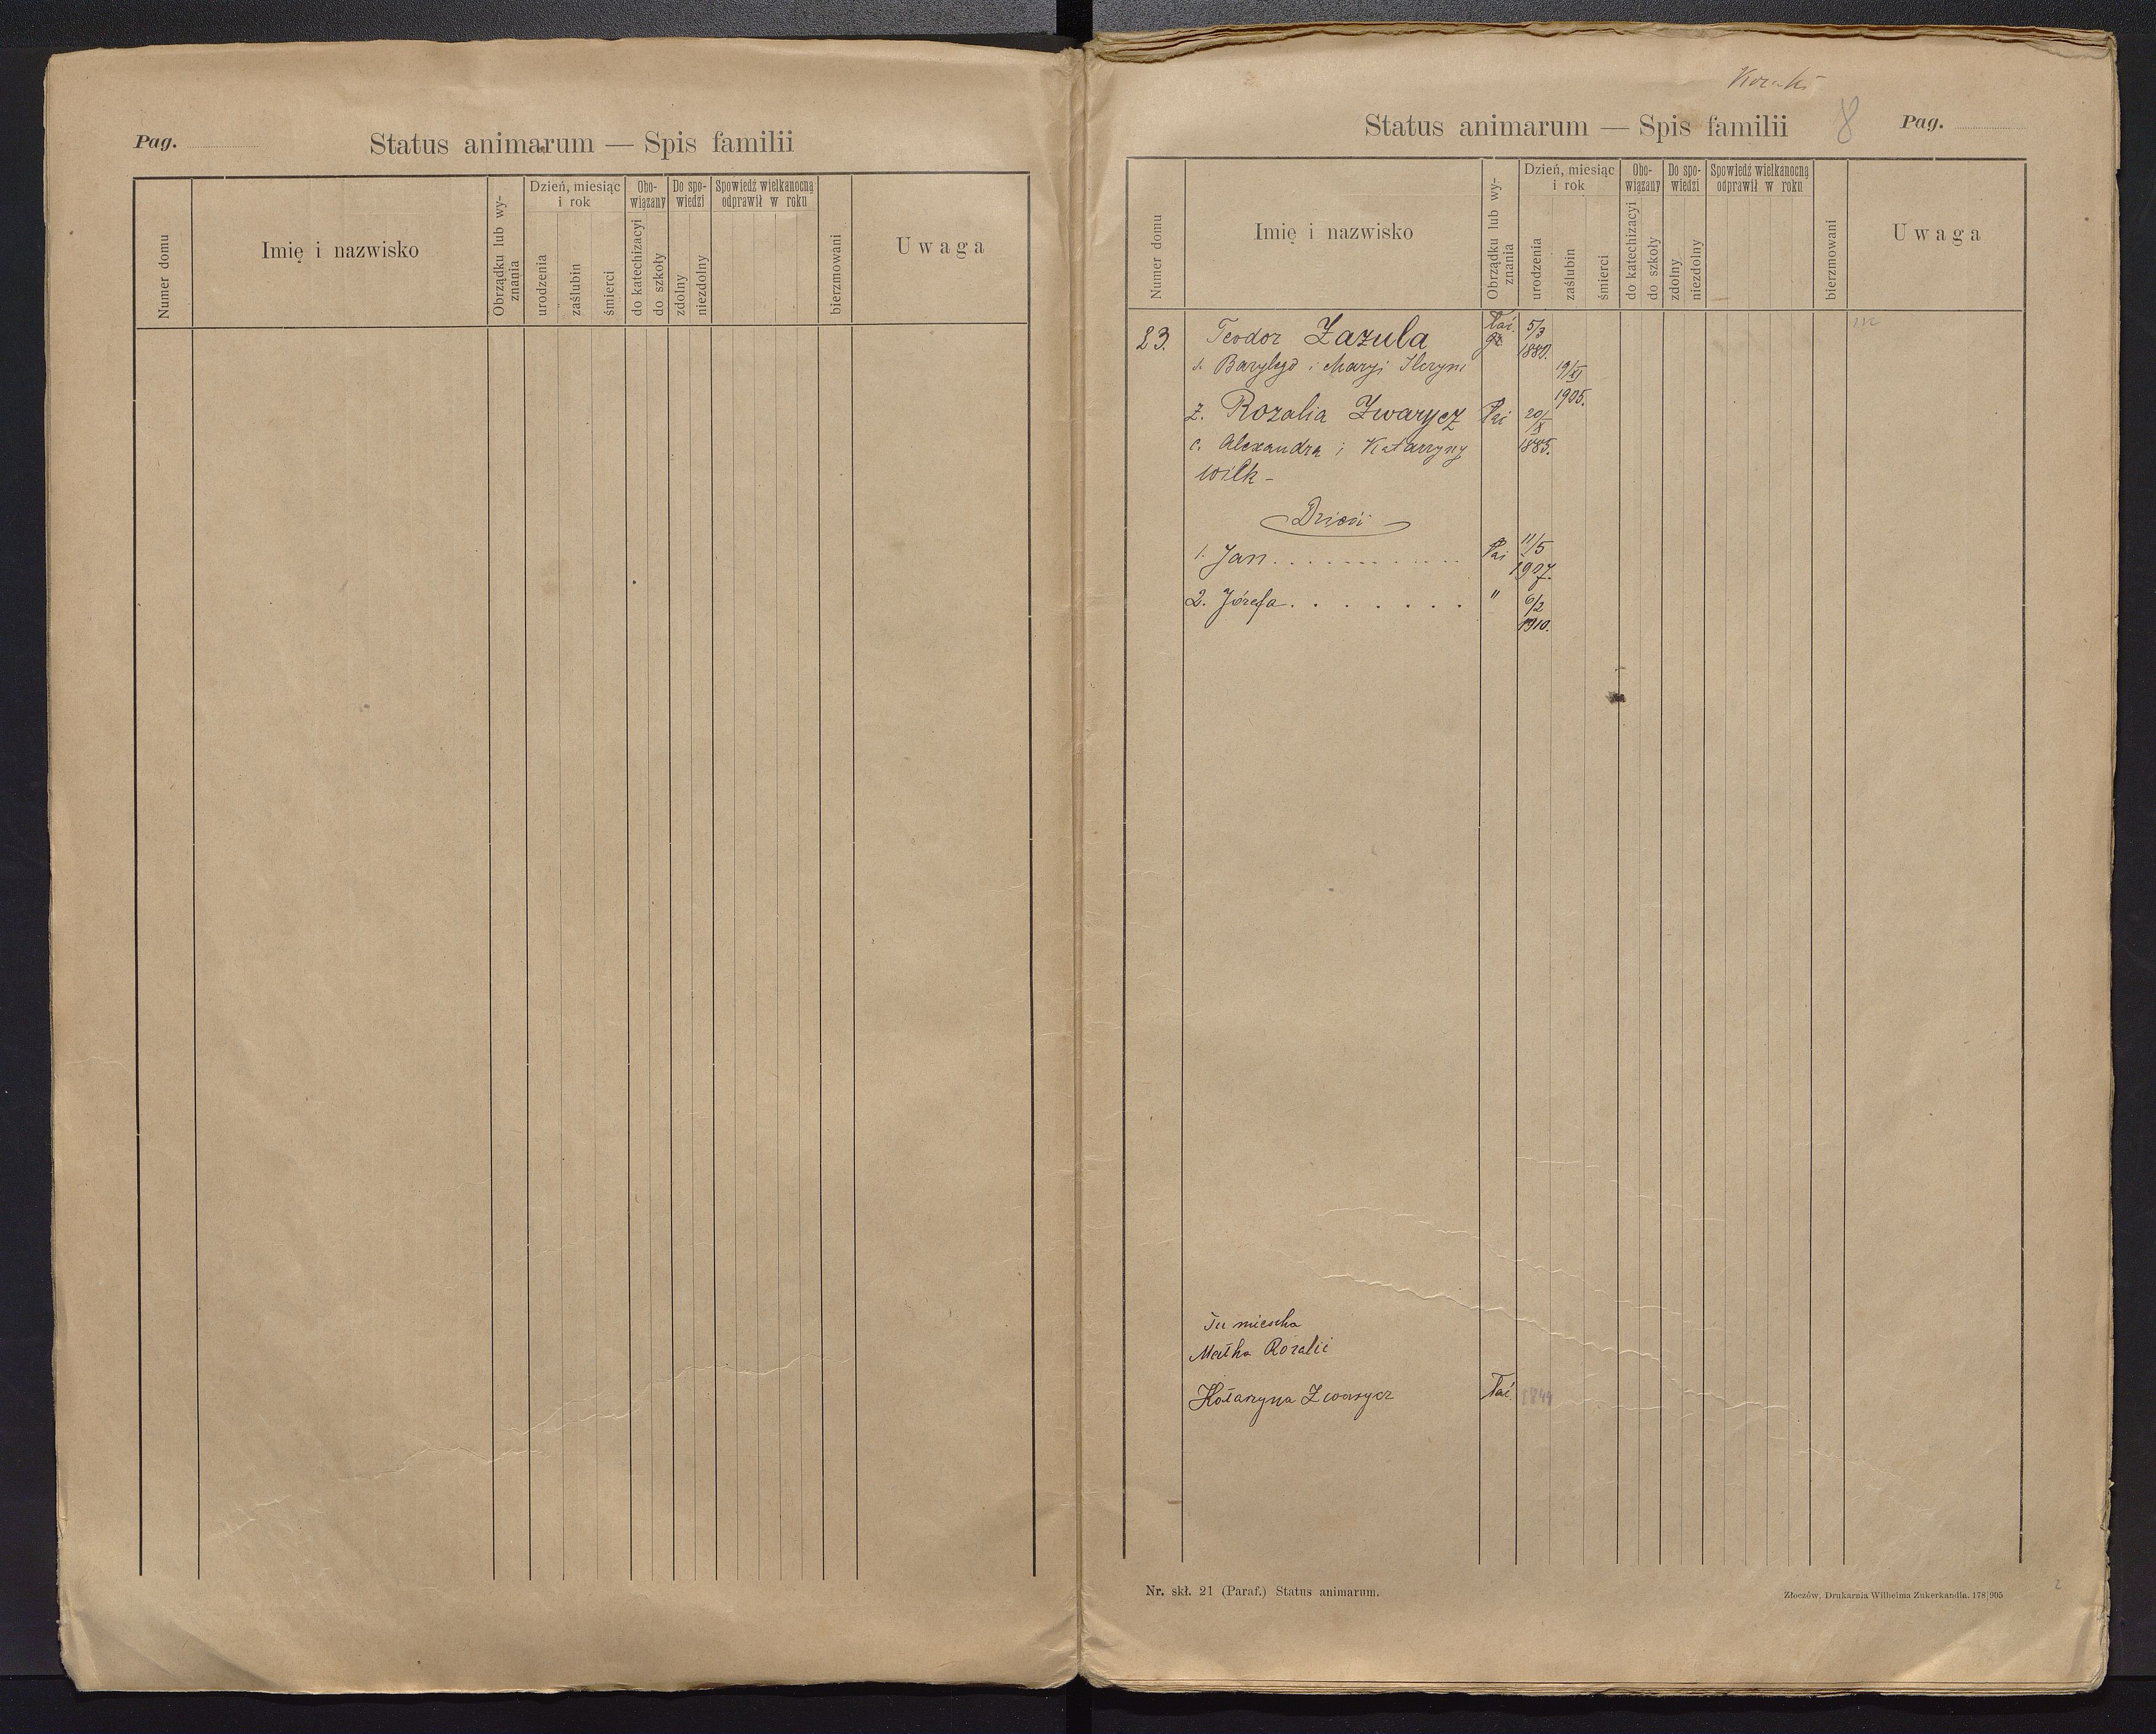 Pag.
Status animarum — Spis familii
Numer domu
Imię i nazwisko
Obrządku lub wy-
znania
Dzień, miesiąc
i rok
urodzenia
zaślubin
śmierci
Obo-
wiązany
do katechizacyi
do szkoły
Do spo-
wiedzi
zdolny
niezdolny
Spowiedź wielkanocną
odprawił w roku
bierzmowani
Uwaga
8
Status animarum — Spis familii
Pag.
Numer domu
Imię i nazwisko
Obrządku lub wy-
znania
Dzień, miesiąc
i rok
urodzenia
zaślubin
śmierci
Obo-
wiązany
do katechizacyi
do szkoły
Do spo-
wiedzi
zdolny
niezdolny
Spowiedź wielkanocną
odprawił w roku
bierzmowani
Uwaga
23. Teodor Zazula 5/3
1880.
s. i Maryi 19/XI
1905.
ż. Rozalia Zwarycz
c. Alexandra i Katarzyny 1885.
Wilk -
Dzieci
1. Jan 11/5
1907.
2. Józefa " 6/2
1910.
Tu mieszka
Matka Rozalii
Katarzyna Zwarycz 1844
Nr. skł. 21 (Paraf.) Status animarum.
Złoczów, Drukarnia Wilhelma Zukerkandla. 178|905